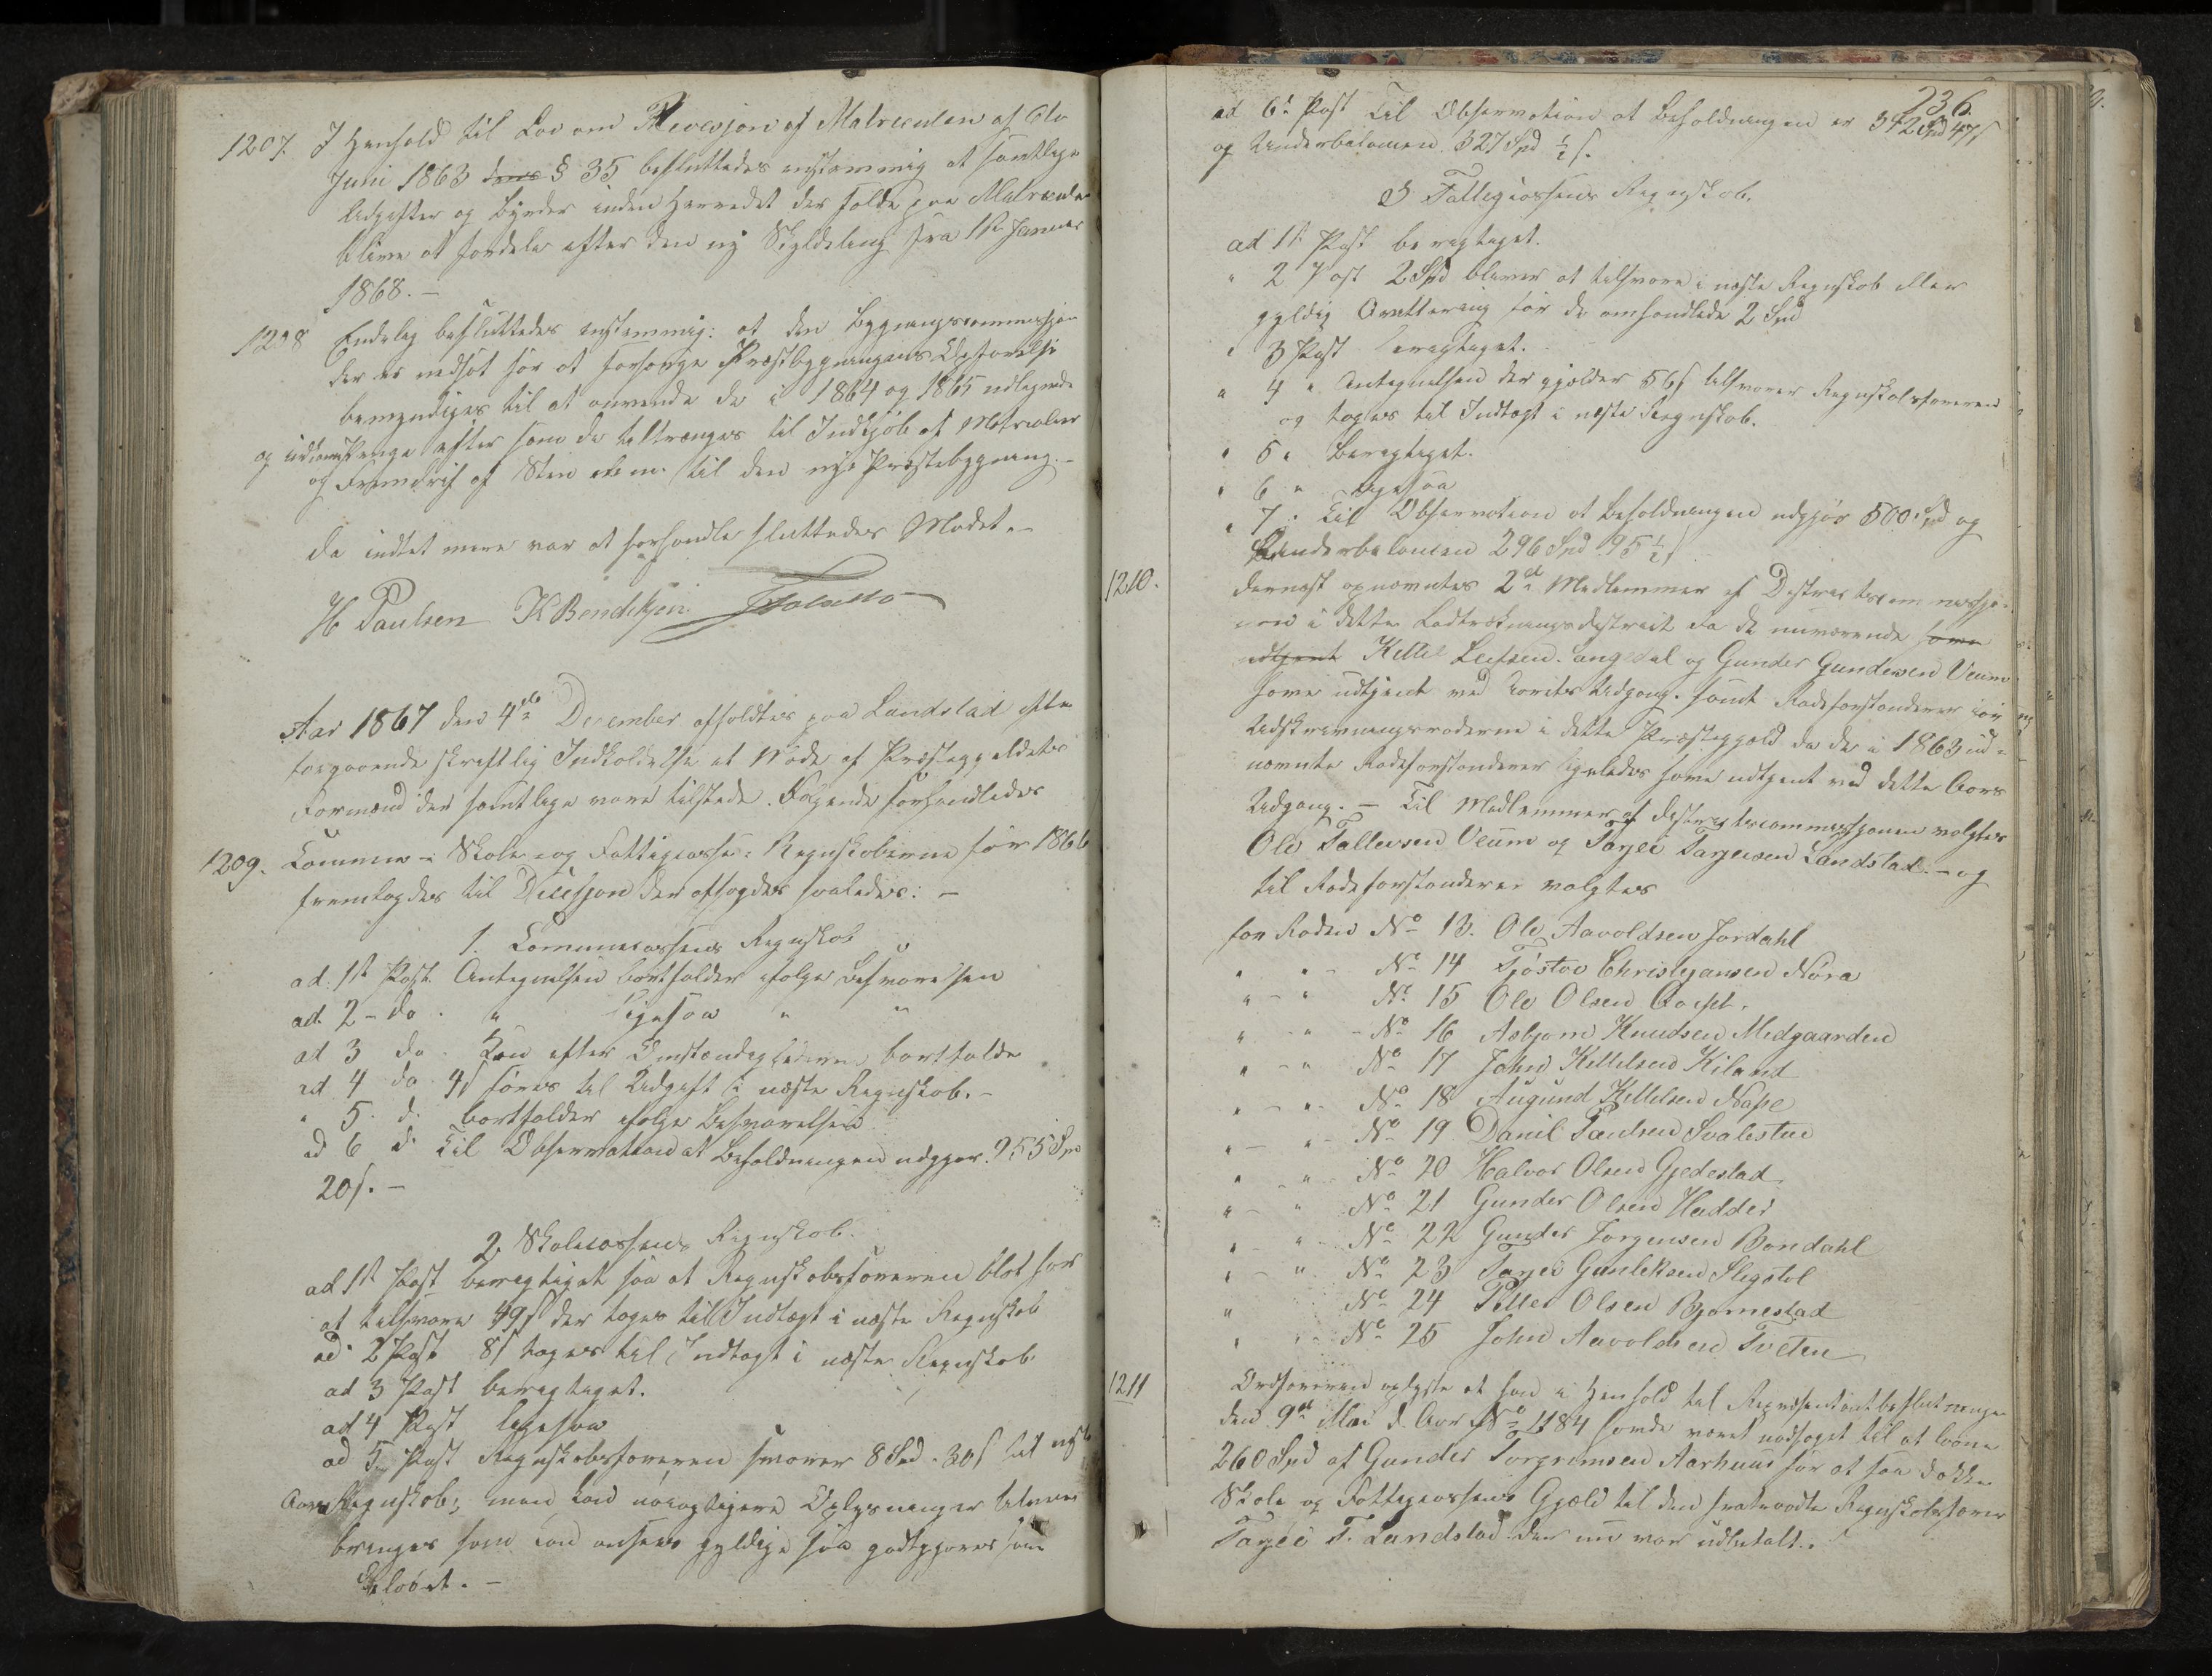 1207. I Henhold til Lov om Revesjon af Matreculen af 6te
Juni 1863 § 35 besluttedes enstemmig at samtlige
Udgifter og Byrder inden Herredet der falde paa Matreculen
blive at fordele efter den ny Skyldeling fra 1ste Januar
1868. –
1208 Endelig besluttedes enstemmig: at den Bygningscommissjon
der er nedsat for at besørge Præstbygningens Opførelse
bemyndiges til at anvende de i 1864 og 1865 udlignede
og Penge efter som de tiltrænges til Indkjøb af Matrealier
og Fremdrif af Sten m. til den nye Præstebygning. –
da indtet mere var at forhandle sluttedes Mødet. –
H Paulsen K Bendiksen
Aar 1867 den 4de December afholdtes paa Landstad efter
foregaaende skriftlig Indkaldelse et Møde af Præstegjeldets
Formænd der samtlige vare tilstede. Følgende forhandledes
1209. Commune- Skole- og Fattigcasse- Regnskaberne for 1866
fremlagdes til Decisjon der afsagdes saaledes: –
1. Communecassens Regnskab
ad. 1ste Post. Antegnelsen bortfalder ifølge Besvarelsen
ad. 2 – do. " Ligesaa " "
ad 3 do. Kan efter Omstændighederne bortfalde
ad 4 do 4s føres til Udgift i næste Regnskab. –
" 5. d. bortfalder ifølge Besvarelsen
ad 6 d. Til Observation at Beholdningen udgjør. 255 Spd
20s. –
2 Skolecassens Regnskab.
ad 1ste Post berigtiget saa at Regnskabsføreren blot har
at tilsvare 49s der tages til Indtægt i næste Regnskab
ad 2 Post 8s tages til Indtægt i næste Regnskab.
ad 3 Post berigtiget.
ad 4 Post ligesaa
ad 5 Post Regnskabsføreren svarer 8 Spd. 30s til næste
Aars Regnskab; men kan nøiagtigere Oplysninger
bringes som kan ansees gyldige saa godtgjøres ham
Beløbet. –
236.
ad 6te Post Til Observation at Beholdningen er 312 Spd 47s
og Underbalancen 327 Spd ½ s.
3 Fattigcassens Regnskab.
ad 1ste Post berigtiget.
" 2 Post 2 Spd bliver at tilsvare i næste Regnskab eller
gyldig Qvittering for de omhandlede 2 Spd
" 3 Post berigtiget.
" 4 " Antegnelsen der gjelder 56s tilsvarer Regnskabsføreren
og tages til Indtægt i næste Regnskab.
" 5 " Berigtiget.
" 6 " ligesaa
" 7 " Til Observation at Beholdningen udgjør 500 Spd og
Underbalancen 296 Spd 95½ s
1210. dernæst opnævntes 2de Medlemmer af Districtscommissjo-
nen i dette Ladtræknings district da de nuværende have
udtjent Kittil Leifsen. og Gunder Gundersen Veum
have udtjent ved Aarets Udgang. samt Rodeforstandere for
Udskrivningsroderne i dette Præstegjæld da de i 1863 ud-
nævnte Rodeforstandere ligeledes have udtjent ved dette Aars
Udgang. – Til Medlemmer af Districtscommissjonen valgtes
Ole Tallevsen Veum og Tarjei Tarjeisen Landstad. – og
til Rodeforstandere valgtes
for Roden No 13. Ole Aavoldsen Jordahl
" " – No 14 Tjøstov Christejansen Nøra
" – " No 15 Ole Olsen
" – " – No 16 Asbjørn Knudsen Medgaarden
" – " No 17 John Kittilsen Kiland
" – " – No 18 Augund Kittilsen Nape
" – " – No 19 Danil Paulsen Svalestul
" – " – No 20 Halvor Olsen Gjedestad
" – " No 21 Gunder Olsen Hadder
" – " No 22 Gunder Jørgensen Bondahl
" – " No 23 Tarjei Gunleksen Slystøl
" No 24 Petter Olsen Bjørnestad
" " No 25 John Aavoldsen Tveten
1211 Ordføreren oplyste at han i Henhold til Repræsentantbeslutningen
den 9de Mai d. Aar No 1184 havde været nødsaget til at laane
260 Spd af Gunder Torgrimsen Aarhuus for at faa dække
Skole og Fattigcassens Gjæld til den fratraadte Regnskabsfører
Tarjei T. Landstad der nu var udbetalt.